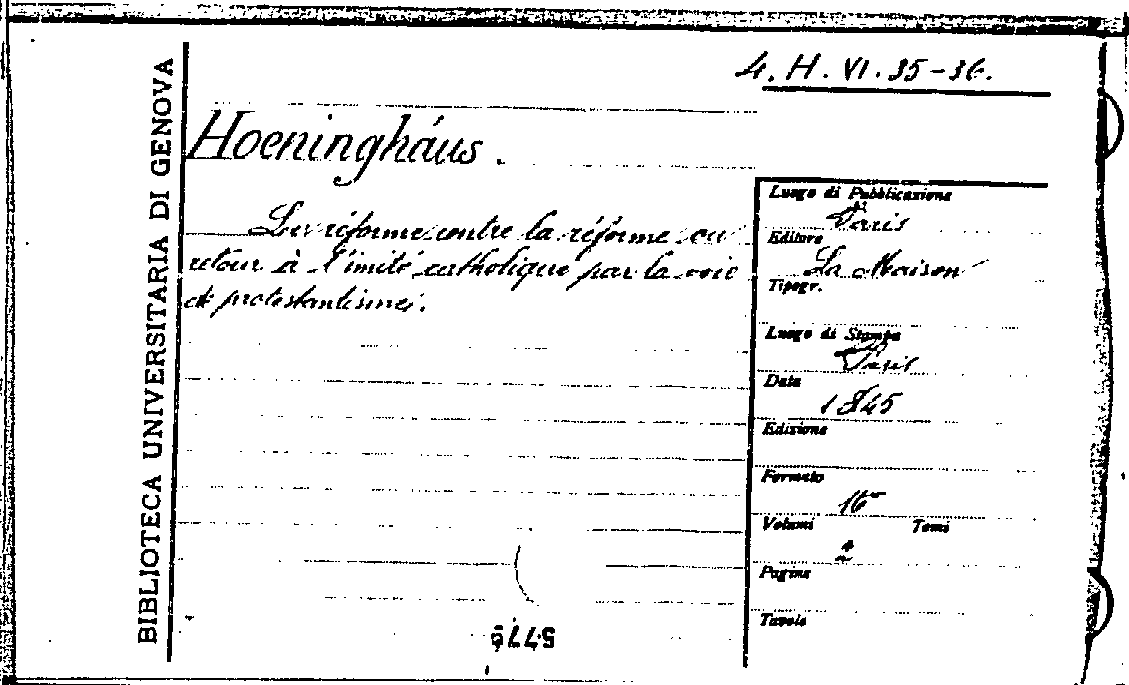 4. H. VI. 35-36.
BIBLIOTECA UNIVERSITARIA DI GENOVA
Hoeninghäus.
La réforme contre la réforme ou
retour à l'imité catholique par la voie
de protestantisme.
Luogo di Pubblicazione
Paris
Editore
La Maison
Tipogr.
Luogo di Stampa
Paris
Data
1845
Edizione
Formato
16°
Volumi Tomi
2
Pagine
Tavole